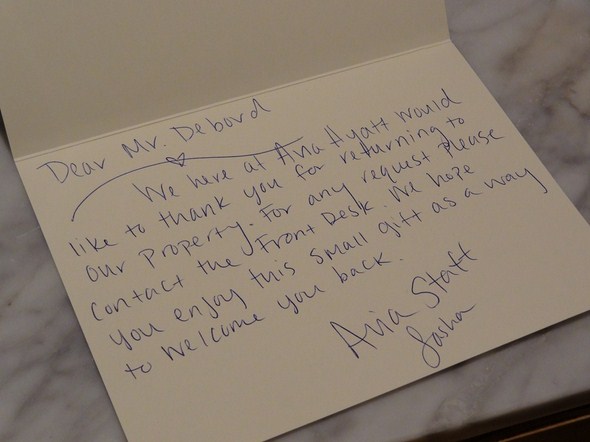 Dear Mr. Debord
We here at Avia Hyatt would
like to thank you for returning to
our Property. For any request please
contact the Front Desk. We hope
you enjoy this small gift as a way
to welcome you back.
Avia Staff
Sasha